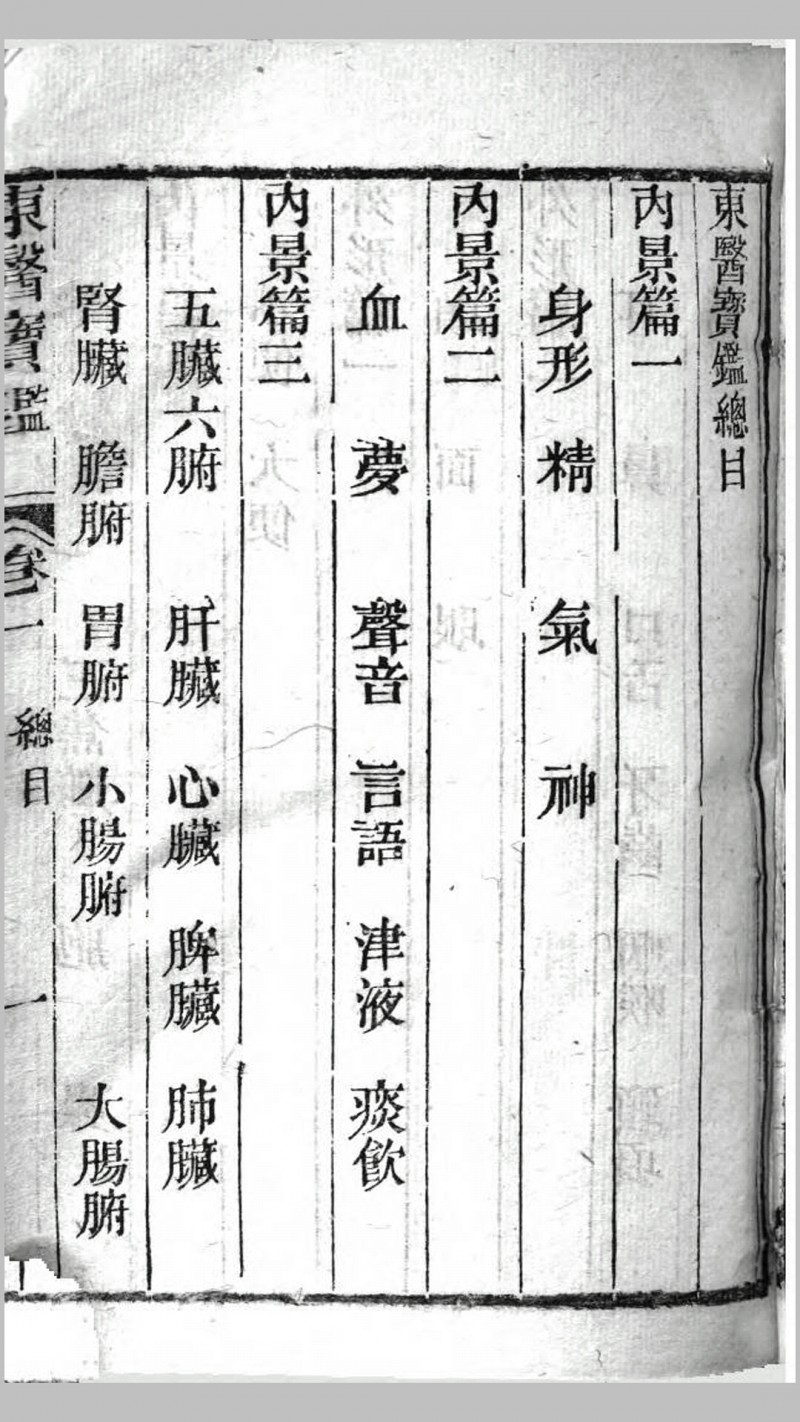 東醫寶鑑總目
內景篇一
身形 精 氣 神
內景篇二
血 夢 聲音 言語 津液 痰飮
內景篇三
五臟六腑 肝臟 心臟 脾臟 肺臟
腎臟 膽腑 胃腑 小腸腑 大腸腑
東醫寶鑑 卷一 總目 一